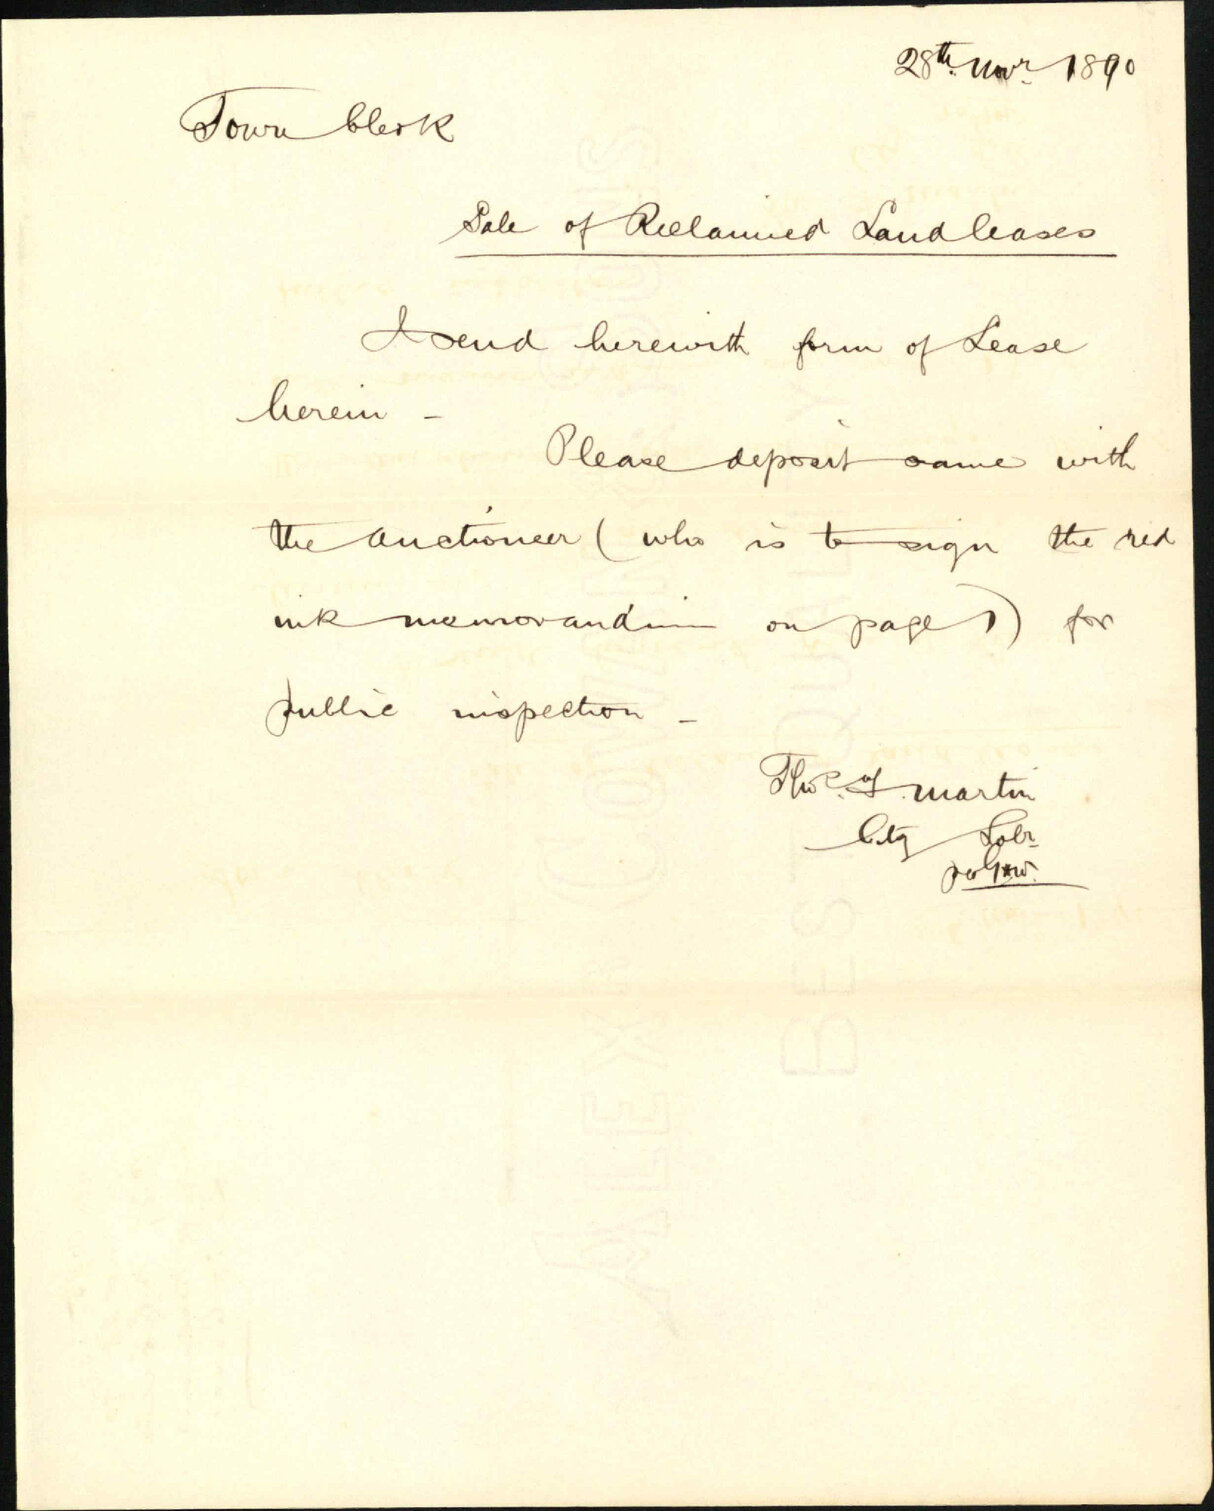 28th. Novr. 1890
Town Clerk
Sale of Reclaimed Land leases
I send herewith form of Lease
herein -
Please deposit same with
the Auctioneer ( who is to sign the red
ink memorandum on page 1) for
public inspection -
Thos. F. Martin
City Solr.
ALEXR COWAN & SONS
BEST QUALITY